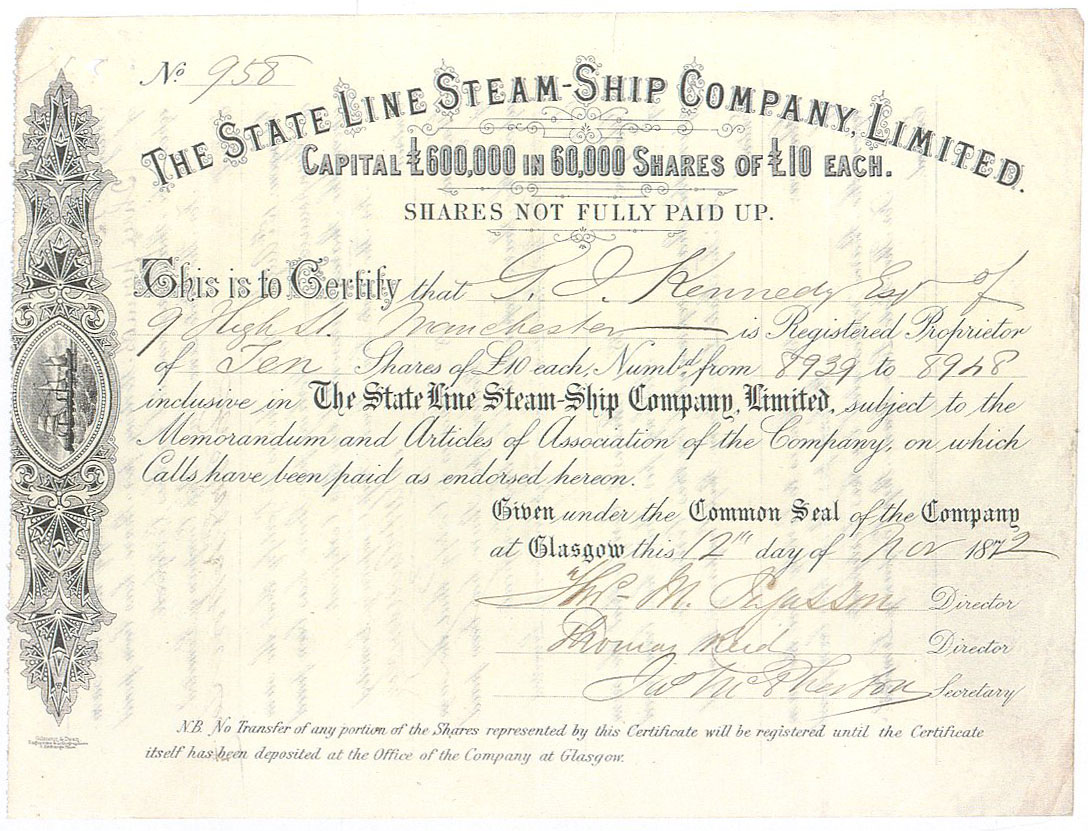 No 958
THE STATE LINE STEAM-SHIP COMPANY, LIMITED.
CAPITAL £600,000 IN 60,000 SHARES OF £10 EACH.
SHARES NOT FULLY PAID UP.
This is to Certify that G. J. Kennedy Esqr of
9 High St. Manchester is Registered Proprietor
of Ten Shares of £10 each, Numbd. from 8939 to 8948
inclusive in The State Line Steam-Ship Company, Limited, subject to the
Memorandum and Articles of Association of the Company, on which
Calls have been paid as endorsed hereon.
Given under the Common Seal of the Company
at Glasgow this 12th day of Nov 1872
Thos. M. Director
Thomas Reid Director
Jas McPherson Secretary
N.B. No Transfer of any portion of the Shares represented by this Certificate will be registered until the Certificate
itself has been deposited at the Office of the Company at Glasgow.